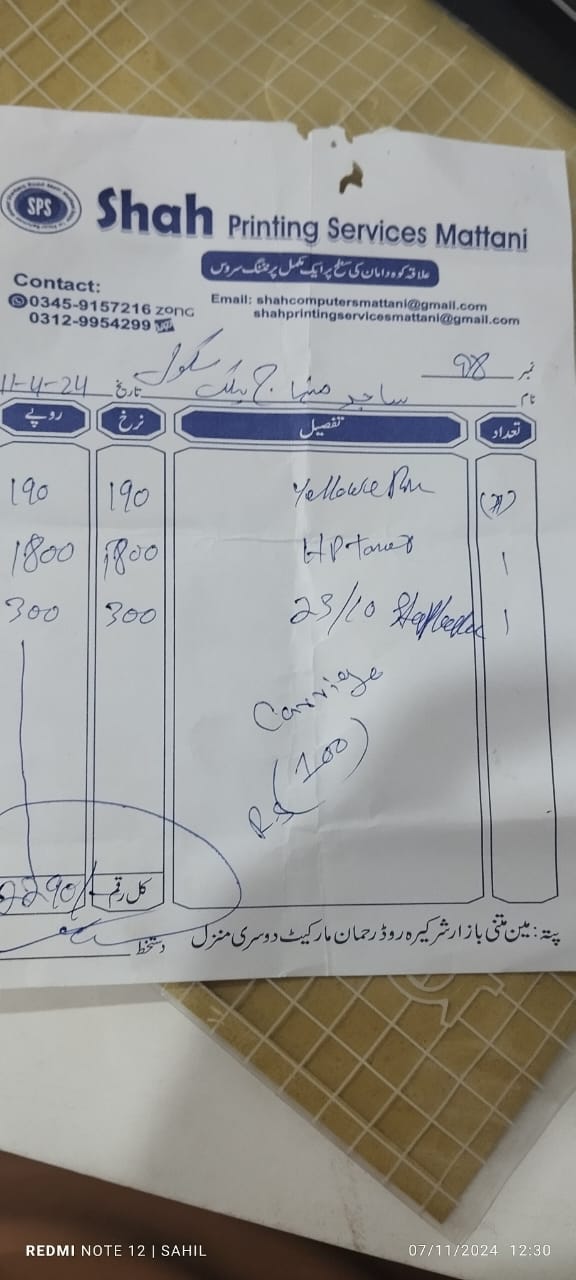 SPS
Shah Printing Services Mattani
علاقہ کوہ دامان کی سطح پر ایک مکمل پرنٹنگ سروس
Contact:
0345-9157216 zong
0312-9954299
Email: shahcomputersmattani@gmail.com
shahprintingservicesmattani@gmail.com
نمبر 98
نام ساجد منہاج پبلک سکول تاریخ 11-4-24
تعداد تفصیل نرخ روپے
190 190
1 HP toner 1800 1800
1 23/10 300 300
Carriage
Rs (100)
کل رقم 2290/-
دستخط
پتہ: مین متنی بازار شرکیرہ روڈ رحمان مارکیٹ دوسری منزل
REDMI NOTE 12 | SAHIL
07/11/2024 12:30